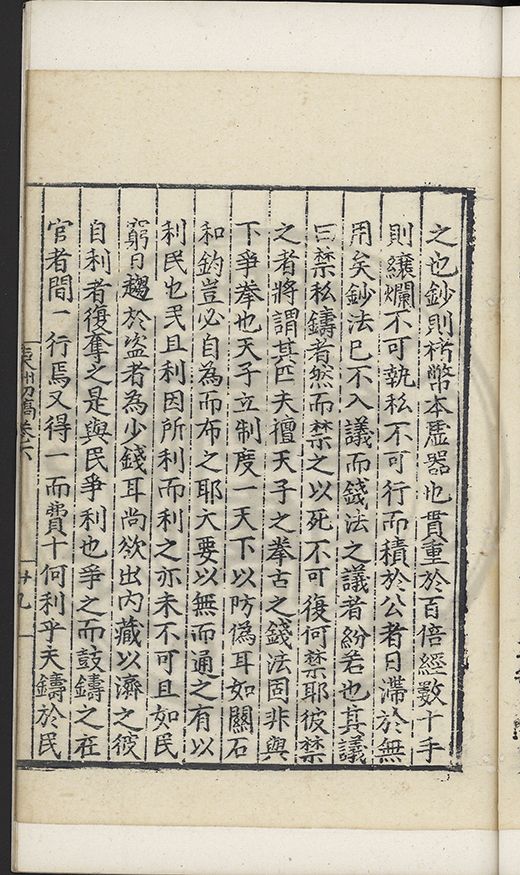 之也鈔則楮幣本虛器也貫重於百倍經數十手
則縷爛不可執私不可行而積於公者日滯於無
用矣鈔法已不入議而錢法之議者紛若也其議
曰禁私鑄者然而禁之以死不可復何禁耶彼禁
之者將謂其匹夫擅天子之拳古之錢法固非與
下爭拳也天子立制度一天下以防偽耳如關石
和鈞豈必自為而布之耶大要以無而通之有以
利民也民且利因所利而利之亦未不可且如民
窮日趨於盜者為少錢耳尚欲出內藏以濟之彼
自利者復奪之是與民爭利也爭之而鼓鑄之在
官者間一行焉又得一而費十何利乎夫鑄於民
初稿卷六
廿九